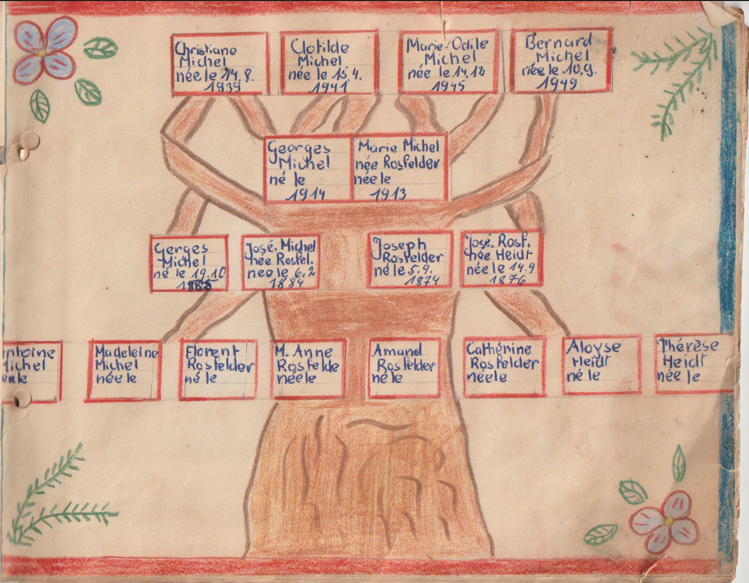 Christiane
Michel
née le 14.8.
1939
Clotilde
Michel
née le 15.4.
1941
Marie-Odile
Michel
née le 14.12
1945
Bernard
Michel
née le 10.9.
1949
Georges
Michel
né le
1914
Marie Michel
née Rosfelder
née le
1913
Gerges
Michel
né le 19.10
José. Michel
née Rosfel.
neo le 6.2
1884
Joseph
Rosfelder
né le 5.9.
1874
José. Rosf.
née Heidt
née le 14.9
1876
ntoine
Michel
Madeleine
Michel
née le
Florent
Rosfelder
né le
M. Anne
Rosfelde
née le
Amand
Rosfelder
né le
Cathérine
Rosfelder
née le
Aloyse
Heidt
né le
Thérèse
Heidt
née le